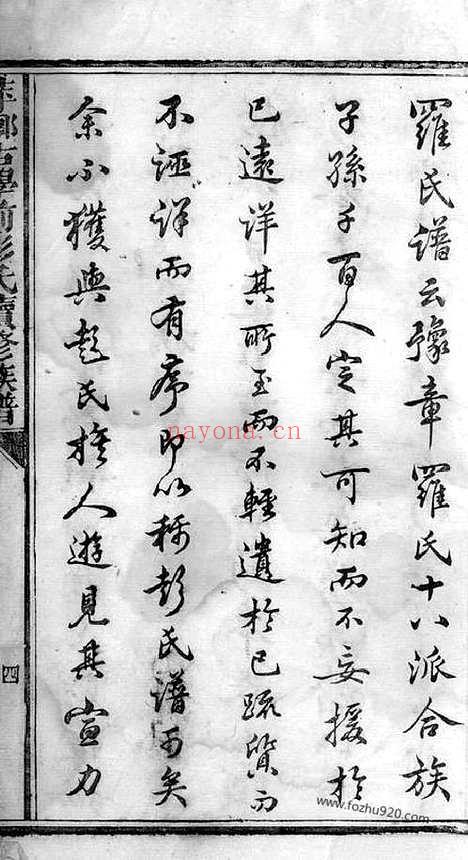 羅氏譜云豫章羅氏十八派合族
子孫千百人定其可知而不妄援於
已遠詳其所至而不輕遺於已疏質而
不誣詳而有序即以稱彭氏譜可矣
余不獲與彭氏族人遊見其宣力
鄉古學前彭氏續修族譜
四
nayona.cn
www.fozhu920.com